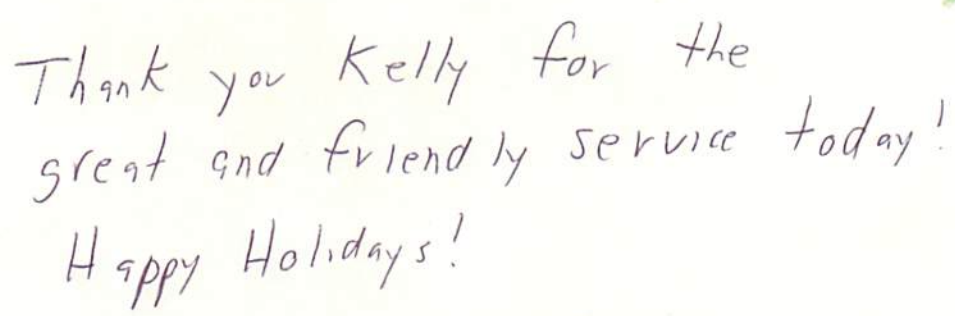 Thank you Kelly for the
great and friendly service today!
Happy Holidays!